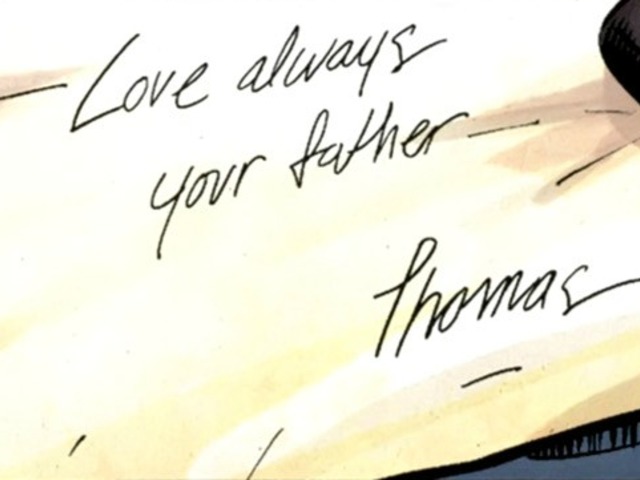 Love always
your father—
Thomas